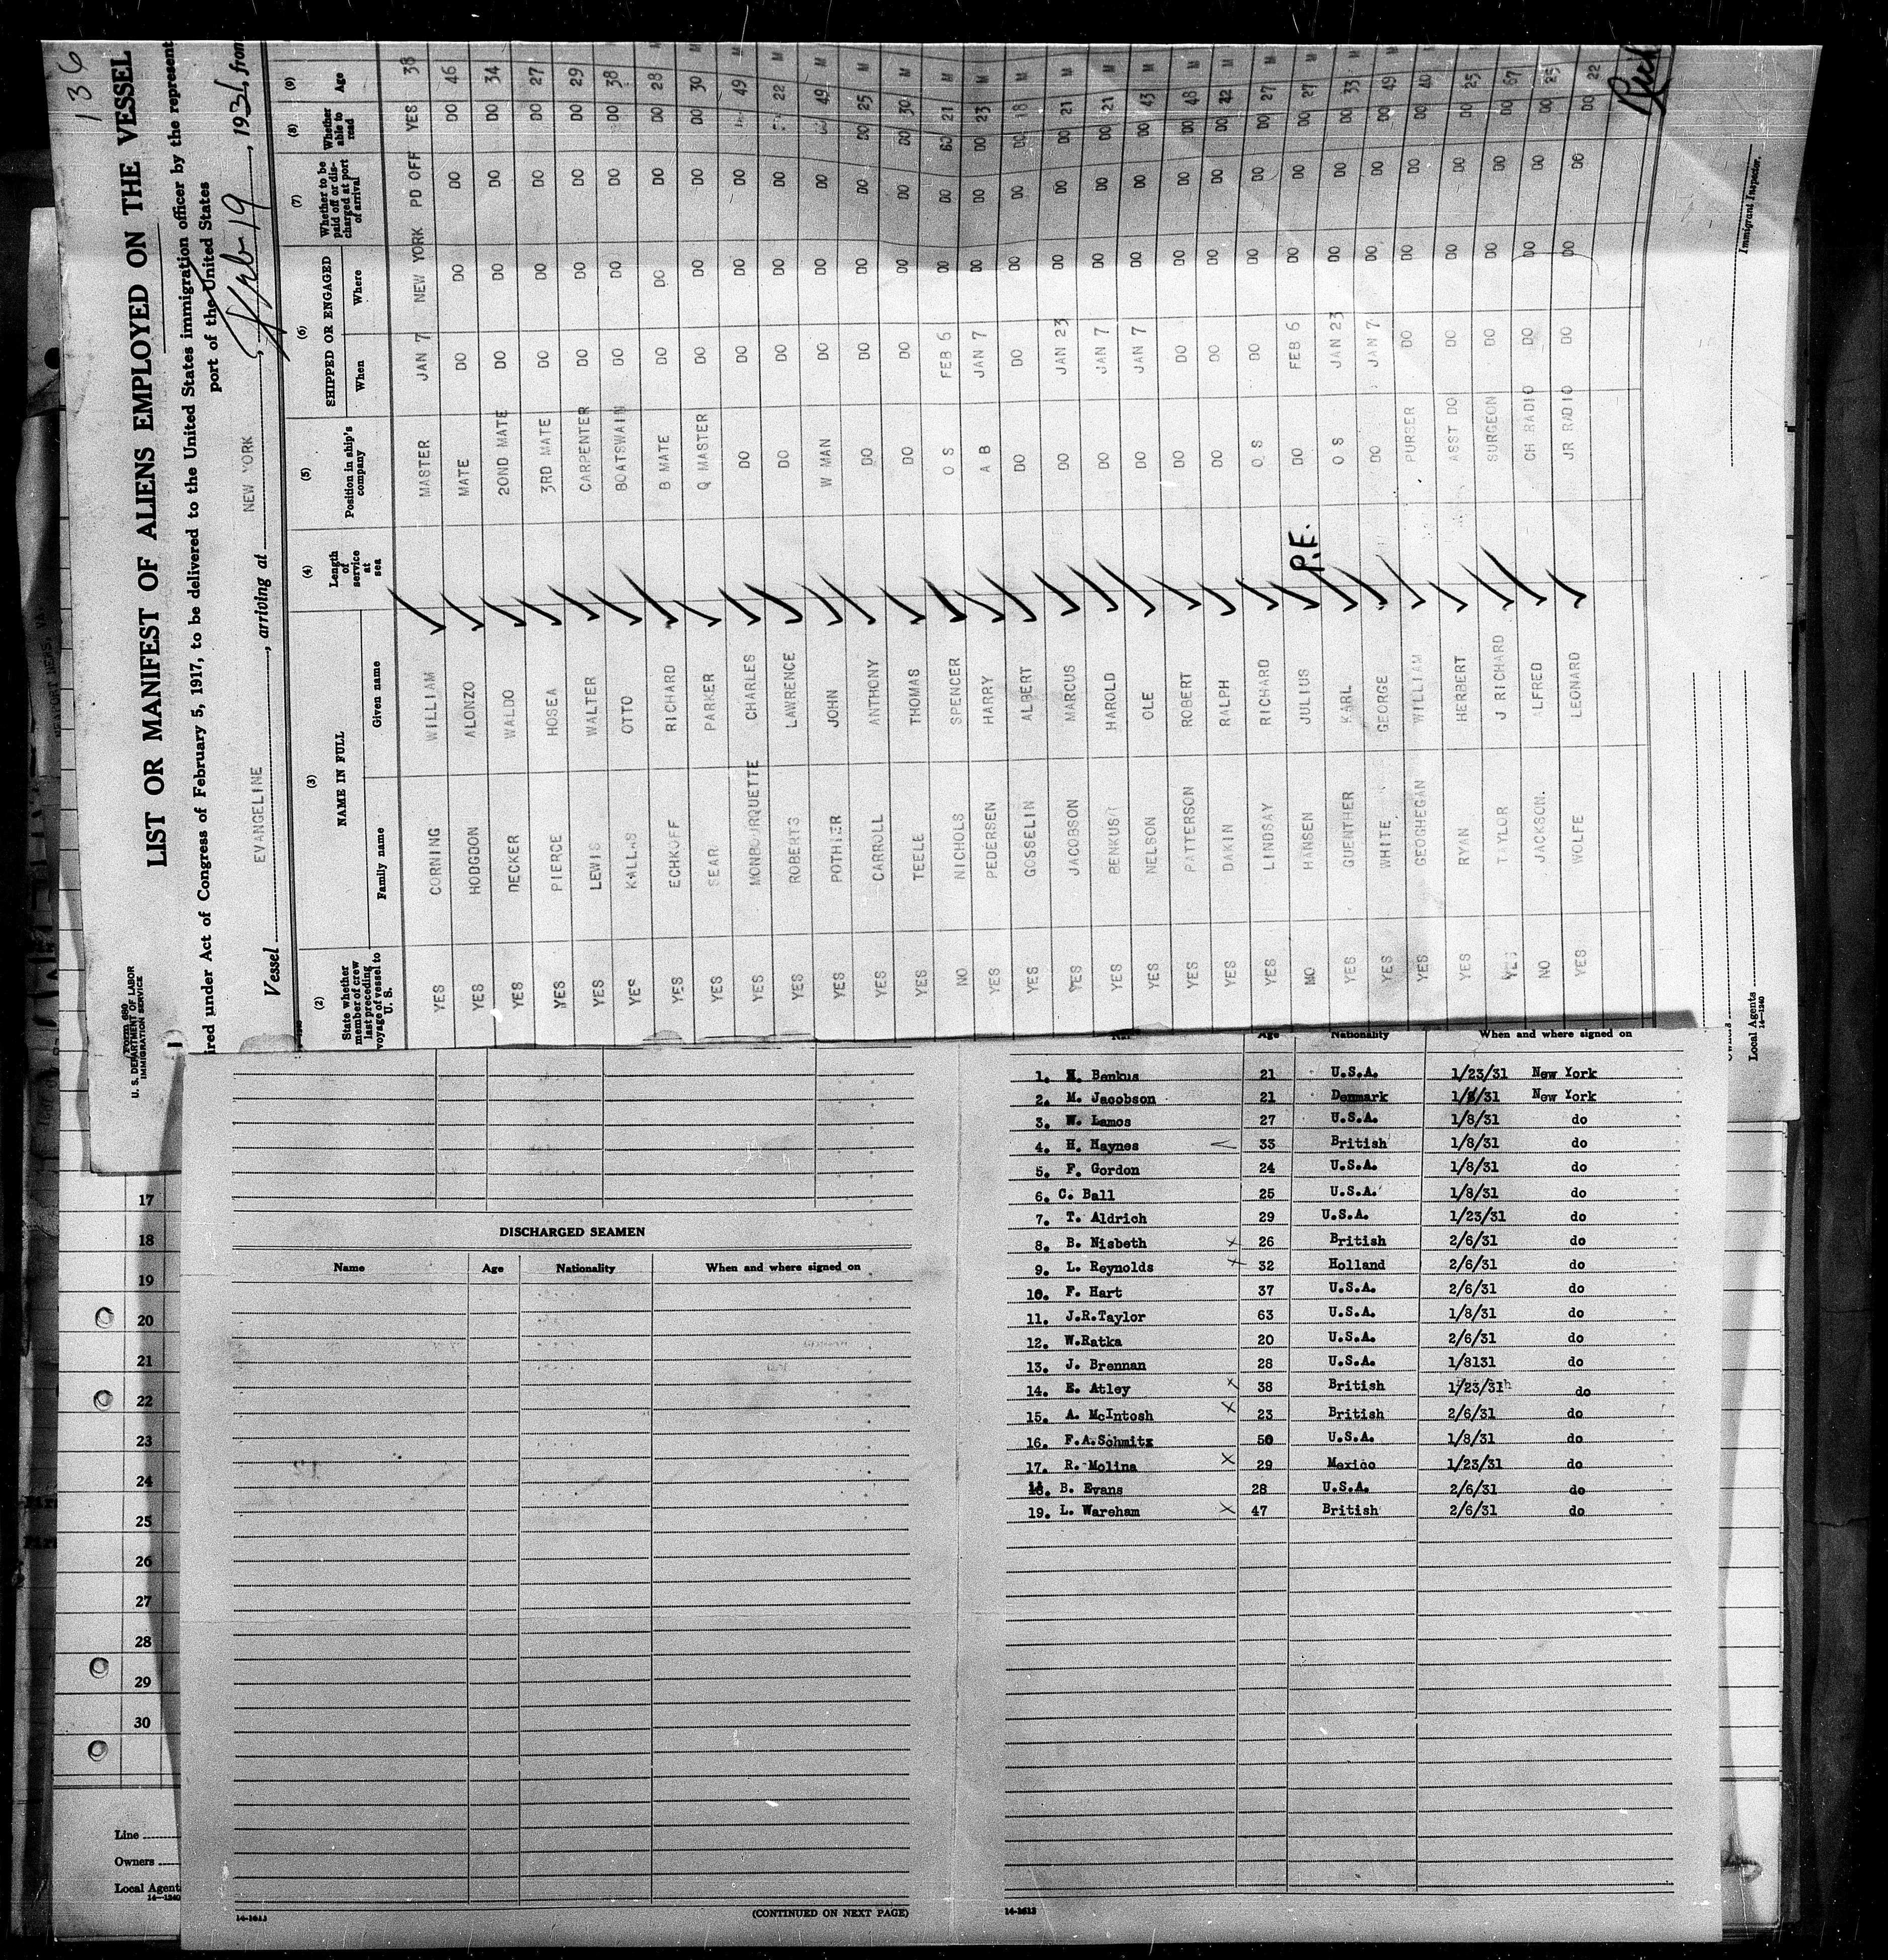 136
LIST OR MANIFEST OF ALIENS EMPLOYED ON THE VESSEL
Form 689
U. S. DEPARTMENT OF LABOR
IMMIGRATION SERVICE
ired under Act of Congress of February 5, 1917, to be delivered to the United States immigration officer by the represent
port of the United States
Vessel EVANGELINE, arriving at NEW YORK, Feb 19, 1931, from
(2) (3) (4) (5) (6) (7) (8) (9)
State whether member of crew last preceding voyage of vessel to U. S.
NAME IN FULL
Family name Given name
Length of service at sea
Position in ship's company
SHIPPED OR ENGAGED
When Where
Whether to be paid off or discharged at port of arrival
Whether able to read
Age
YES CORNING WILLIAM MASTER JAN 7 NEW YORK PD OFF YES 38
YES HODGDON ALONZO MATE DO DO DO DO 46
YES DECKER WALDO 20ND MATE DO DO DO DO 34
YES PIERCE HOSEA 3RD MATE DO DO DO DO 27
YES LEWIS WALTER CARPENTER DO DO DO DO 29
YES KALLAS OTTO BOATSWAIN DO DO DO DO 38 M
YES ECHKOFF RICHARD B MATE DO DO DO DO 28 M
YES SEAR PARKER Q MASTER DO DO DO DO 30 M
YES MONBOURQUETTE CHARLES DO DO DO DO 49 M
YES ROBERTS LAWRENCE DO DO DO DO 22 M
YES POTHIER JOHN W MAN DO DO DO DO 49 M
YES CARROLL ANTHONY DO DO DO DO DO 25 M
YES TEELE THOMAS DO DO DO DO DO 30 M
NO NICHOLS SPENCER O S FEB 6 DO DO DO 21 M
YES PEDERSEN HARRY A B JAN 7 DO DO DO 23 M
YES GOSSELIN ALBERT DO DO DO DO DO 18 M
YES JACOBSON MARCUS DO JAN 23 DO DO DO 21 M
YES BENKUST HAROLD DO JAN 7 DO DO DO 21 M
YES NELSON OLE DO JAN 7 DO DO DO 43 M
YES PATTERSON ROBERT DO DO DO DO DO 48 M
YES DAKIN RALPH DO DO DO DO DO 42 M
YES LINDSAY RICHARD O S DO DO DO DO 27 M
NO HANSEN JULIUS P.E. DO FEB 6 DO DO DO 27 M
YES GUENTHER KARL O S JAN 23 DO DO DO 33 M
YES WHITE GEORGE DO JAN 7 DO DO DO 49 M
YES GEOGHEGAN WILLIAM PURSER DO DO DO DO 40 M
YES RYAN HERBERT ASST DO DO DO DO DO 25 M
YES TAYLOR J RICHARD SURGEON DO DO DO DO 67 M
NO JACKSON. ALFRED CH RADIO DO DO DO DO 25 M
YES WOLFE LEONARD JR RADIO DO DO DO DO 22
Immigrant Inspector.
Local Agents
14-1240
17
18
19
20
21
22
23
24
25
26
27
28
29
30
Line
Owners
Local Agent
14-1240
DISCHARGED SEAMEN
Name Age Nationality When and where signed on
14-1613
(CONTINUED ON NEXT PAGE)
Age Nationality When and where signed on
1. H. Benkus 21 U.S.A. 1/23/31 New York
2. M. Jacobson 21 Denmark 1/8/31 New York
3. W. Lamos 27 U.S.A. 1/8/31 do
4. H. Haynes 33 British 1/8/31 do
5. F. Gordon 24 U.S.A. 1/8/31 do
6. C. Ball 25 U.S.A. 1/8/31 do
7. T. Aldrich 29 U.S.A. 1/23/31 do
8. B. Nisbeth x 26 British 2/6/31 do
9. L. Reynolds x 32 Holland 2/6/31 do
10. F. Hart 37 U.S.A. 2/6/31 do
11. J.R.Taylor 63 U.S.A. 1/8/31 do
12. W.Ratka 20 U.S.A. 2/6/31 do
13. J. Brennan 28 U.S.A. 1/8131 do
14. E. Atley x 38 British 1/23/31 do
15. A. McIntosh x 23 British 2/6/31 do
16. F.A.Schmitz 50 U.S.A. 1/8/31 do
17. R. Molina x 29 Mexico 1/23/31 do
18. B. Evans 28 U.S.A. 2/6/31 do
19. L. Wareham x 47 British 2/6/31 do
14-1613